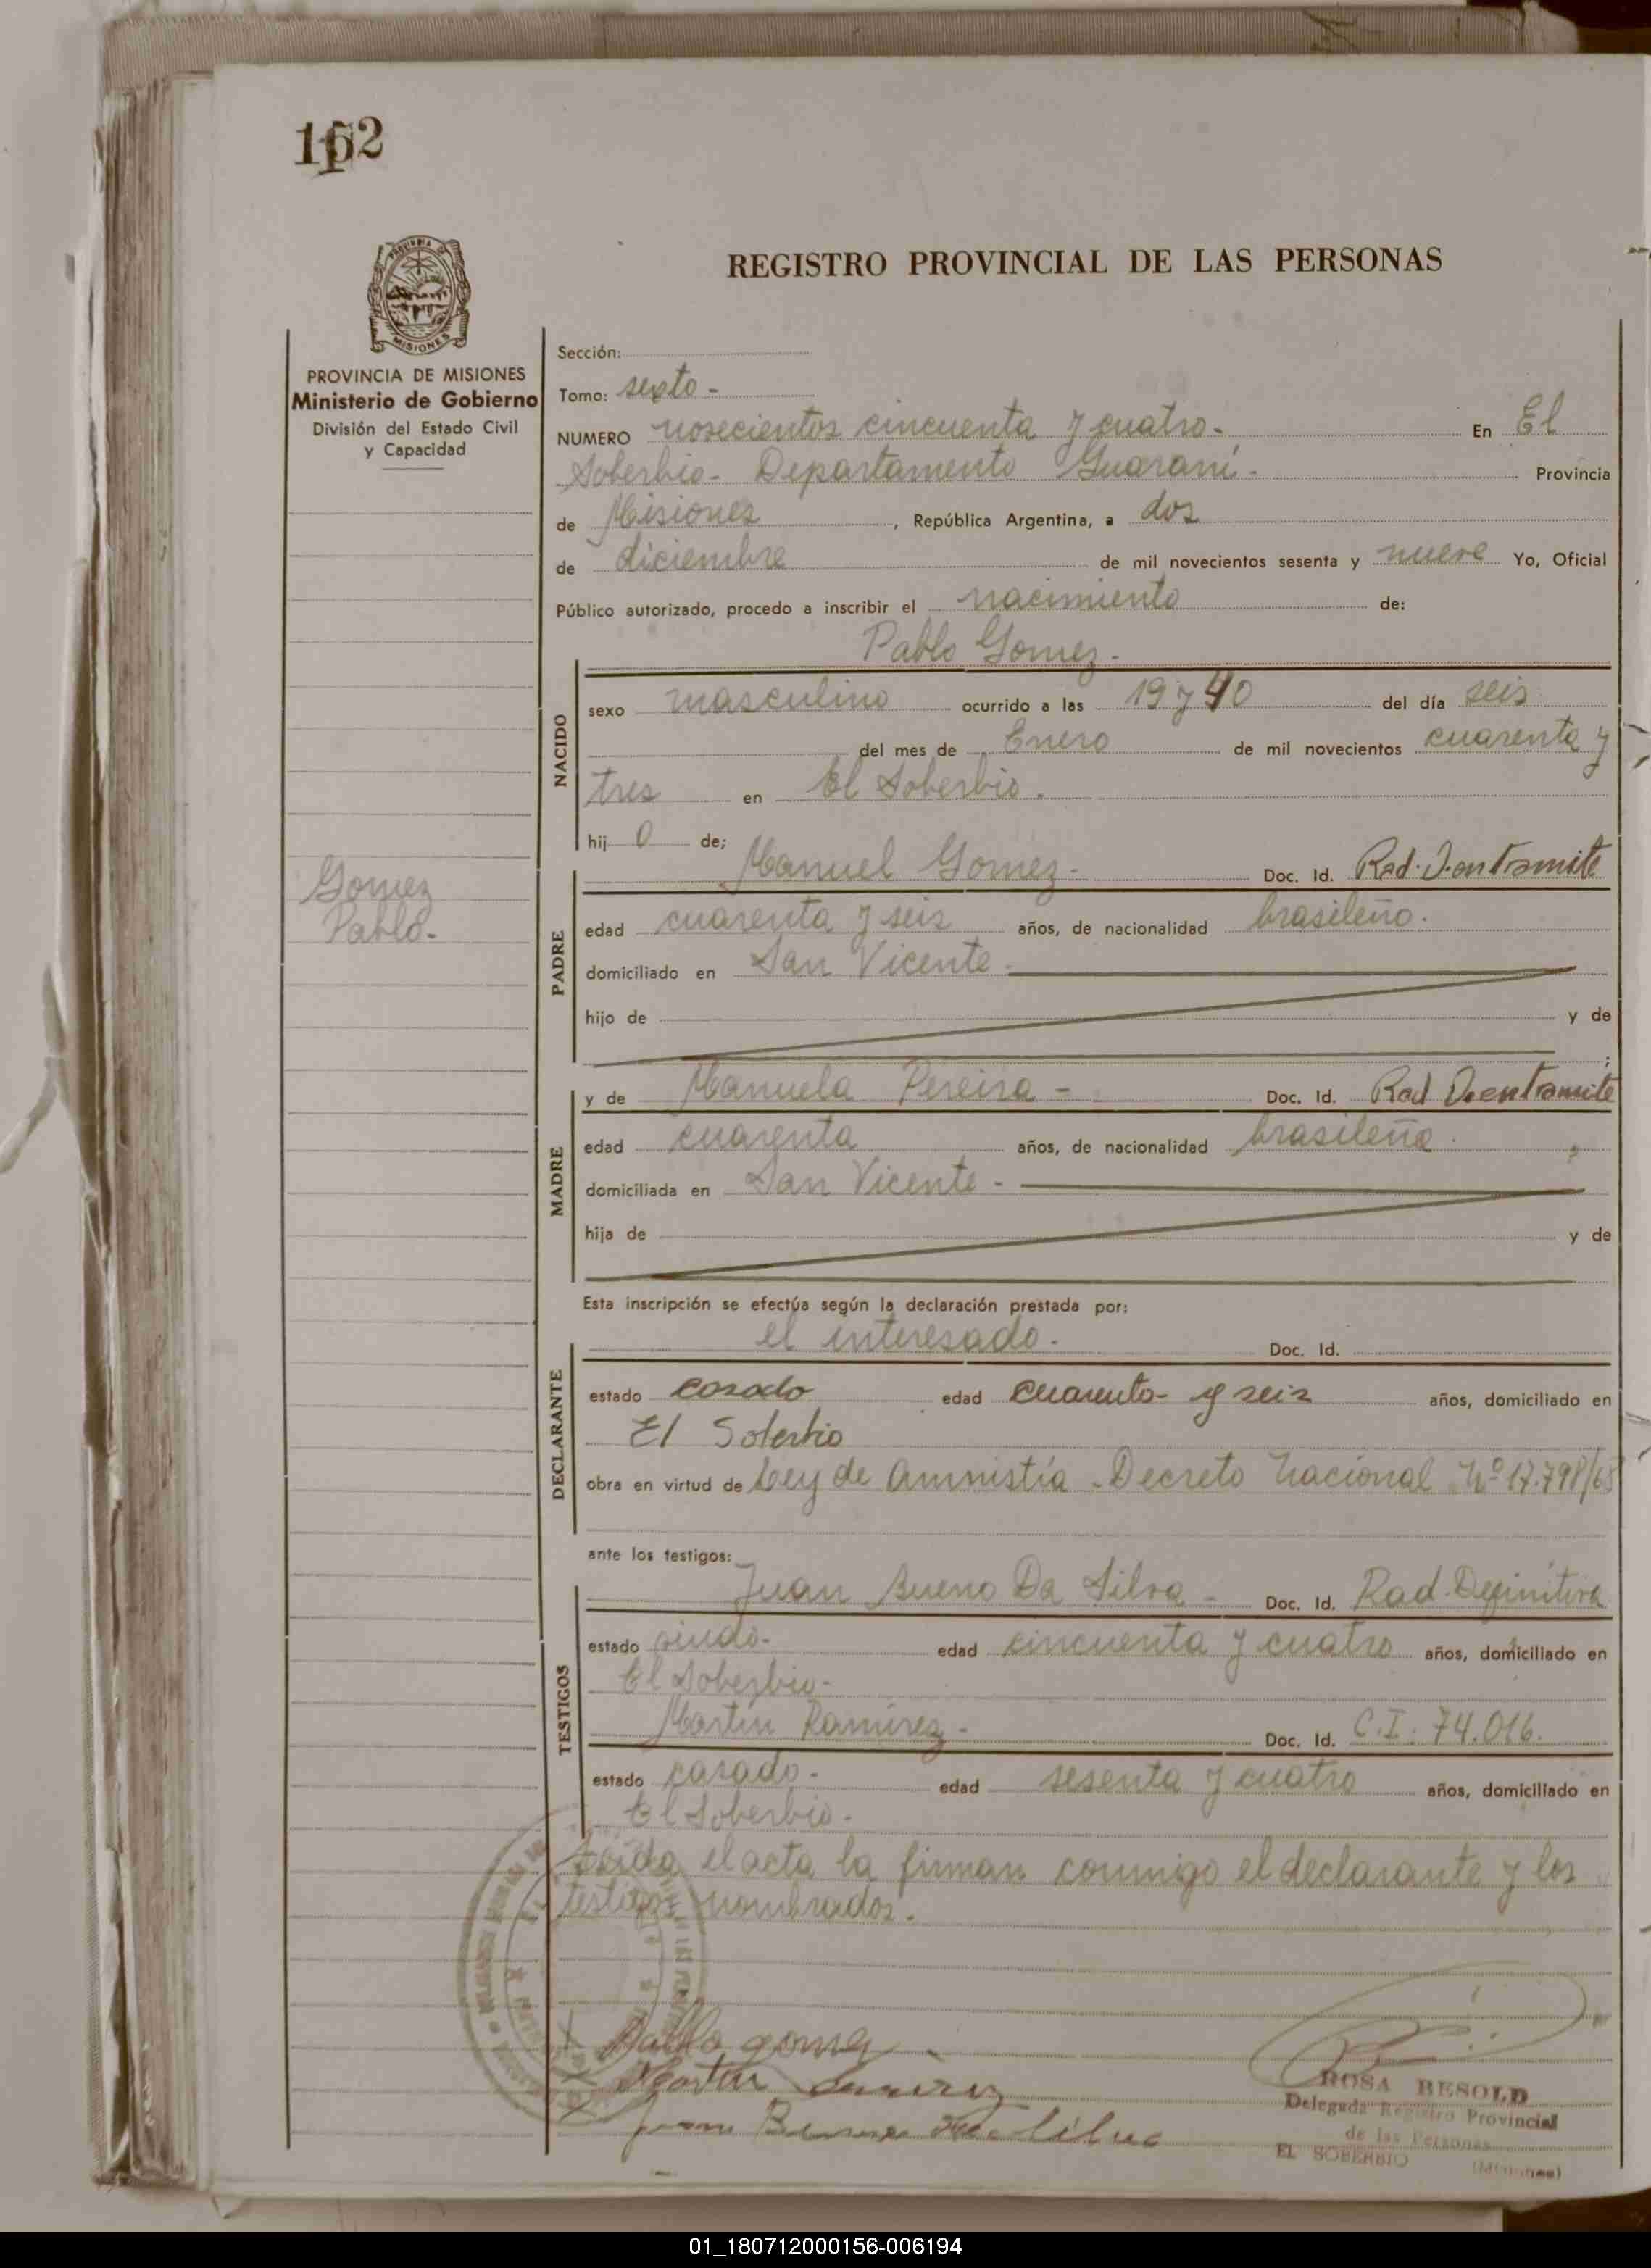 152
REGISTRO PROVINCIAL DE LAS PERSONAS
MISIONES
PROVINCIA DE MISIONES
Ministerio de Gobierno
División del Estado Civil
y Capacidad
Gomez
Pablo-
Sección:
Tomo: sexto-
NUMERO novecientos cincuenta y cuatro- En El
Soberbio- Departamento Guaraní- Provincia
de Misiones, República Argentina, a dos
de diciembre de mil novecientos sesenta y nueve Yo, Oficial
Público autorizado, procedo a inscribir el nacimiento de:
Pablo Gomez-
NACIDO
sexo masculino ocurrido a las 19 y 40 del día seis
del mes de Enero de mil novecientos cuarenta y
tres en El Soberbio.
hij o de;
PADRE
Manuel Gomez- Doc. Id. Rad. D. en tramite
edad cuarenta y seis años, de nacionalidad brasileño.
domiciliado en San Vicente-
hijo de y de
;
MADRE
y de Manuela Pereira - Doc. Id. Rad D. en tramite
edad cuarenta años, de nacionalidad brasileña.,
domiciliada en San Vicente-
hija de y de
Esta inscripción se efectúa según la declaración prestada por:
DECLARANTE
el interesado. Doc. Id.
estado casado edad cuarenta- y seis años, domiciliado en
El Soberbio
obra en virtud de Ley de Amnistía - Decreto Nacional Nº 17.798/68
ante los testigos:
TESTIGOS
Juan Bueno Da Silva - Doc. Id. Rad. Definitiva
estado viudo- edad cincuenta y cuatro años, domiciliado en
El Soberbio-
Martin Ramirez - Doc. Id. C.I. 74.016.
estado casado- edad sesenta y cuatro años, domiciliado en
El Soberbio-
Leida el acta la firman conmigo el declarante y los
testigos nombrados.
Pablo gomez
Martin Ramirez
Juan Bueno Da Silva
ROSA BESOLD
Delegada Registro Provincial
de las Personas
EL SOBERBIO (Misiones)
01_180712000156-006194